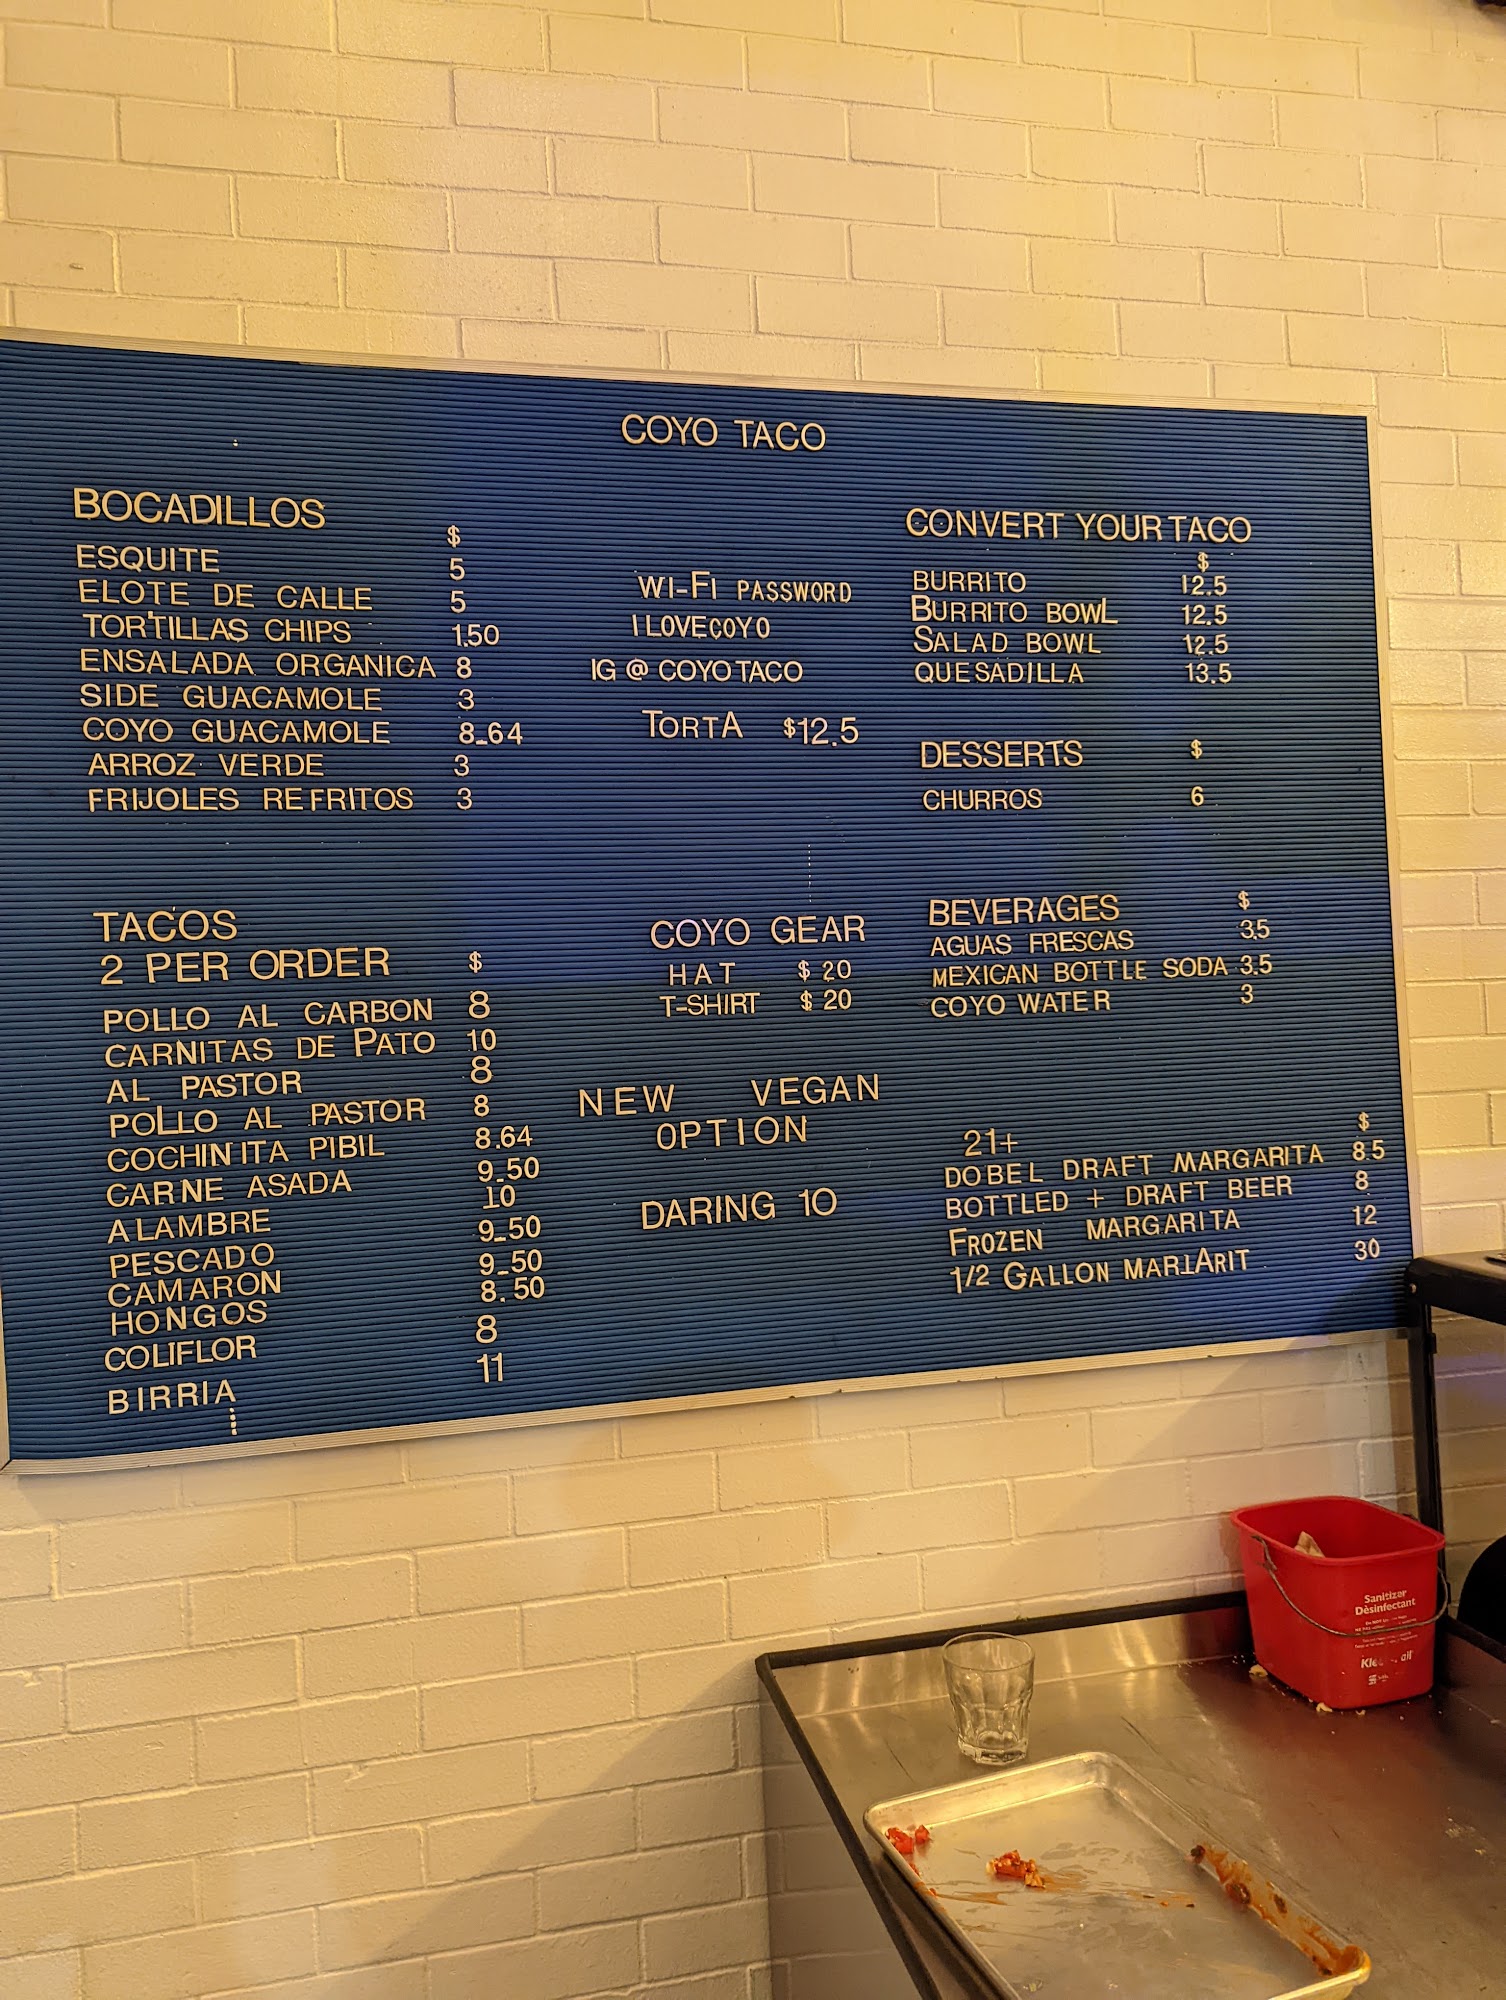 COYO TACO
BOCADILLOS
$
ESQUITE 5
ELOTE DE CALLE 5
TORTILLAS CHIPS 1.50
ENSALADA ORGANICA 8
SIDE GUACAMOLE 3
COYO GUACAMOLE 8.64
ARROZ VERDE 3
FRIJOLES REFRITOS 3
WI-FI PASSWORD
ILOVECOYO
IG @ COYOTACO
TORTA $12.5
CONVERT YOUR TACO
$
BURRITO 12.5
BURRITO BOWL 12.5
SALAD BOWL 12.5
QUESADILLA 13.5
DESSERTS $
CHURROS 6
TACOS
2 PER ORDER $
POLLO AL CARBON 8
CARNITAS DE PATO 10
AL PASTOR 8
POLLO AL PASTOR 8
COCHINITA PIBIL 8.64
CARNE ASADA 9.50
ALAMBRE 10
PESCADO 9.50
CAMARON 9.50
HONGOS 8.50
COLIFLOR 8
BIRRIA 11
COYO GEAR
HAT $20
T-SHIRT $20
NEW VEGAN
OPTION
DARING 10
BEVERAGES $
AGUAS FRESCAS 3.5
MEXICAN BOTTLE SODA 3.5
COYO WATER 3
$
21+
DOBEL DRAFT MARGARITA 8.5
BOTTLED + DRAFT BEER 8
FROZEN MARGARITA 12
1/2 GALLON 30
Sanitizer
Désinfectant